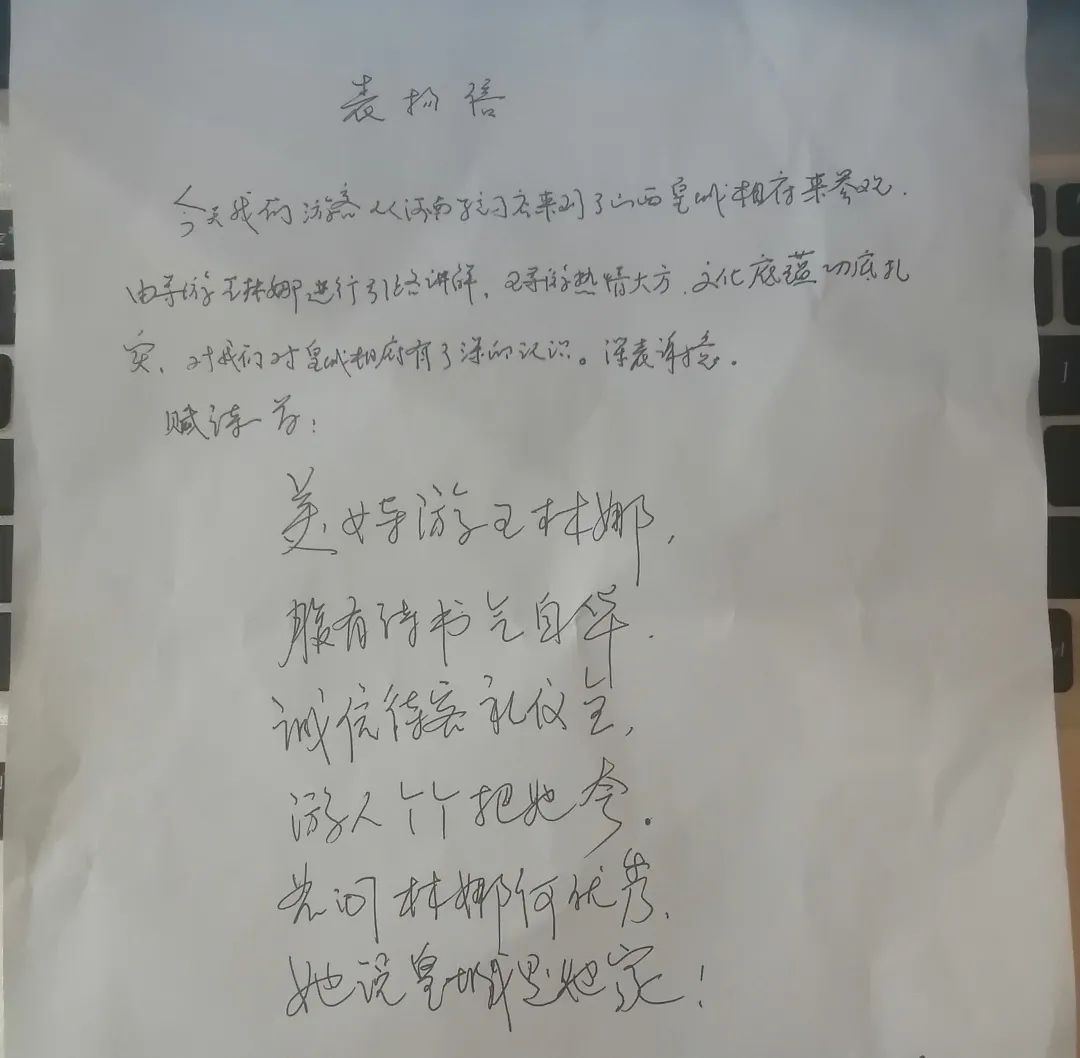 表扬信
今天我们游客从河南来到了山西皇城相府来参观.
由导游王林娜进行引路讲解,王导游热情大方.文化底蕴功底扎
实,对我们对皇城相府有了深的认识。深表谢意.
赋诗一首:
美女导游王林娜,
腹有诗书气自华.
诚信待客礼仪全,
游人个个把她夸.
若问林娜何优秀,
她说皇城是她家!